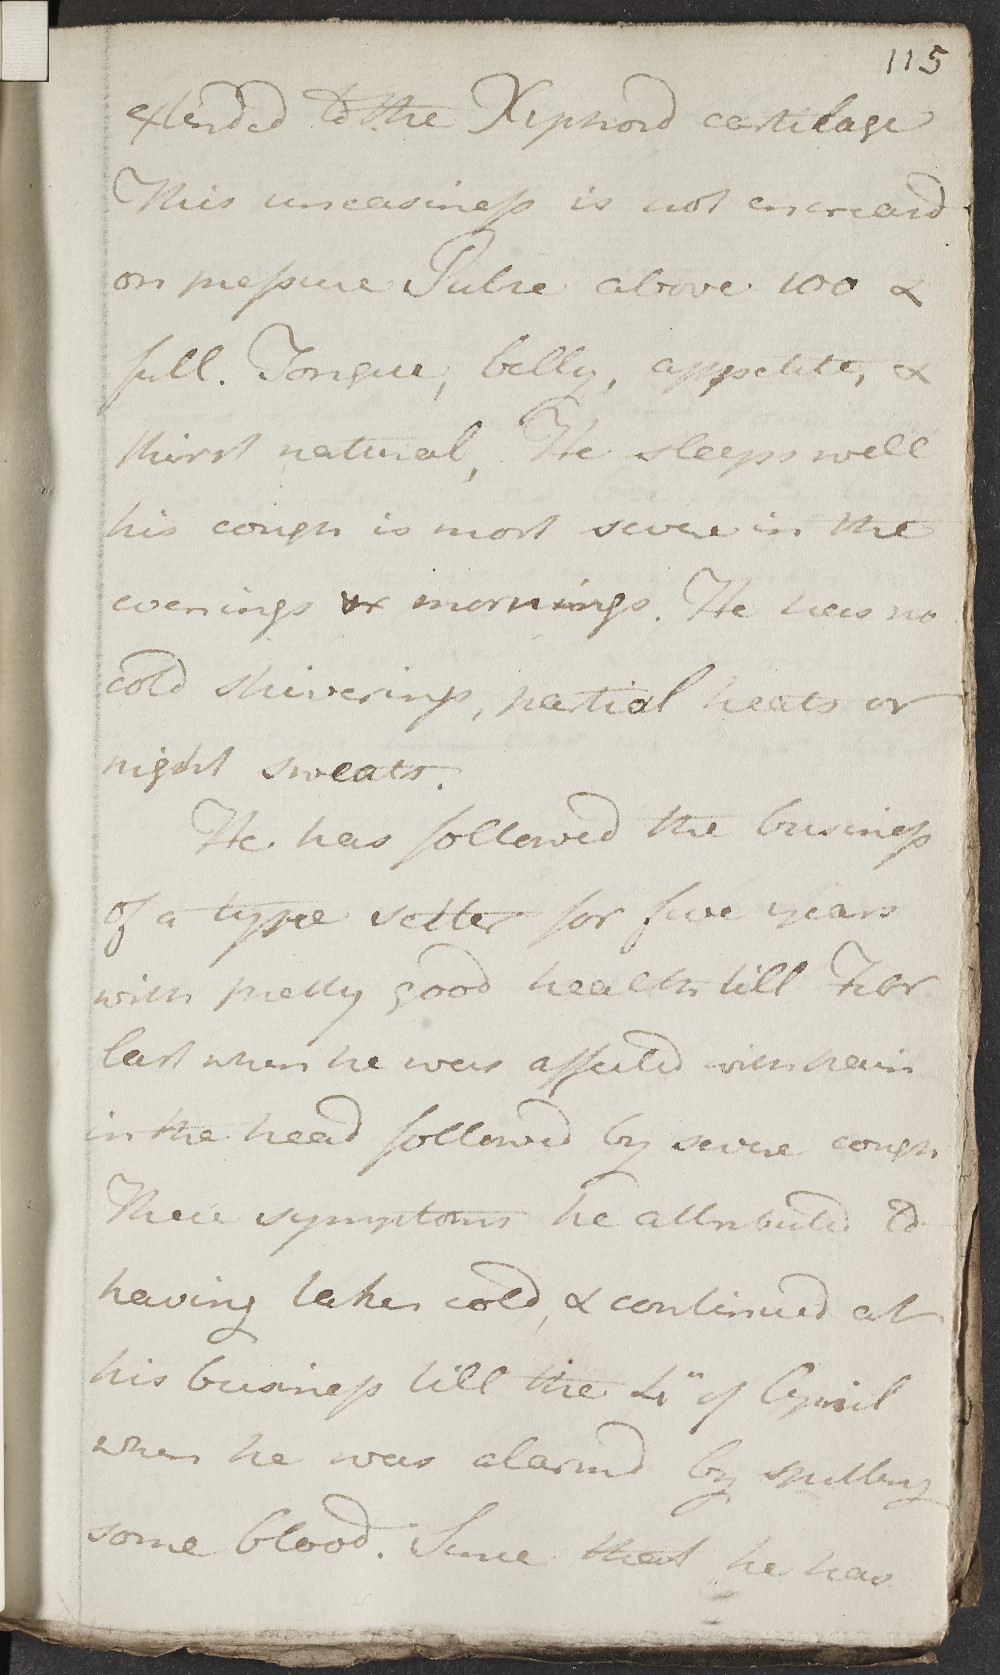 115
extended to the Xiphoid cartilage
This uneasiness is not encreasd
on pressure Pulse above 100 &
full. Tongue, belly, appetite, &
thirst natural, He sleeps well
his cough is most severe in the
evenings & mornings. He has no
cold shiverings, partial heats or
night sweats.
He has followed the business
of a type setter for five years
with pretty good health till Febr
last when he was affected with pain
in the head followed by severe cough
These symptoms he attributed to
having taken cold, & continued at
his business till the 4" of April
when he was alarmd by spitting
some blood. Since that he has